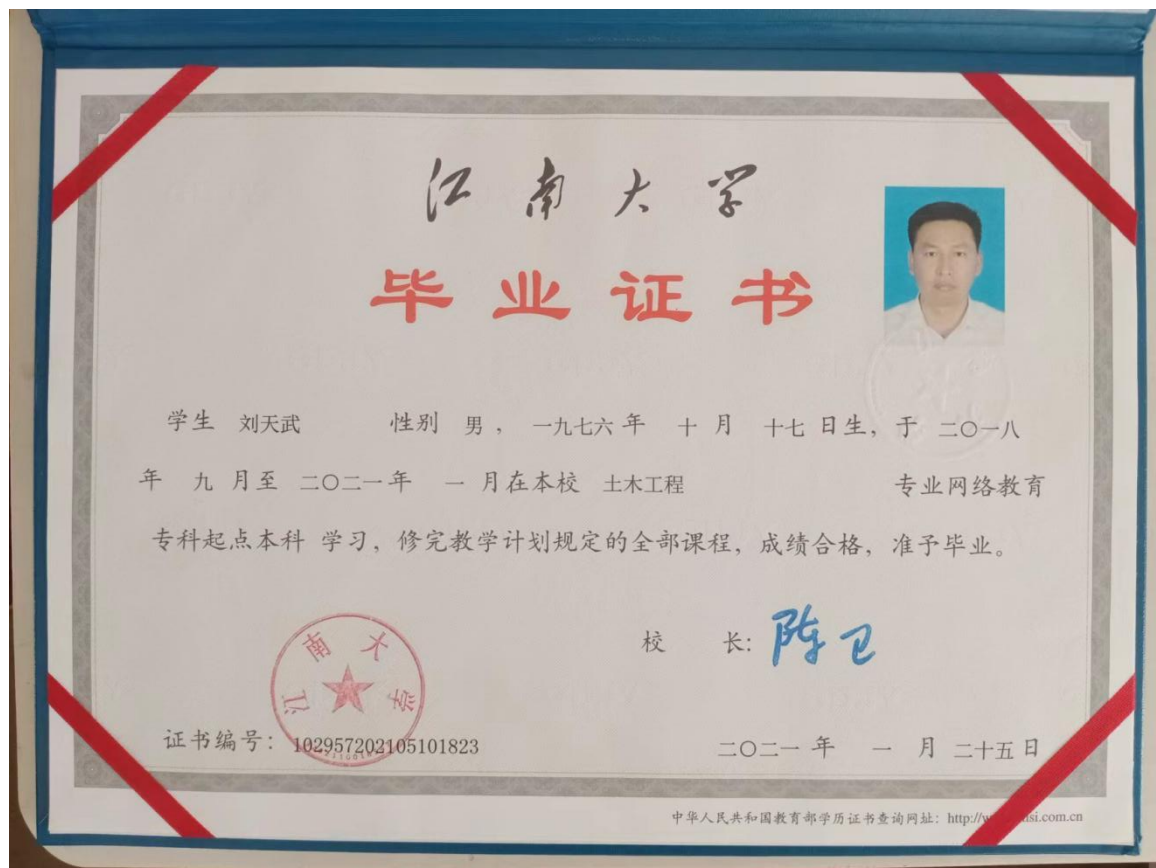 江南大学
毕业证书
学生 刘天武 性别 男 ， 一九七六 年 十 月 十七 日生，于 二〇一八
年 九 月至 二〇二一 年 一 月在本校 土木工程 专业网络教育
专科起点本科 学习，修完教学计划规定的全部课程，成绩合格，准予毕业。
校 长: 陈卫
江南大学
证书编号： 102957202105101823
二〇二一 年 一 月 二十五 日
中华人民共和国教育部学历证书查询网址：http://w si.com.cn